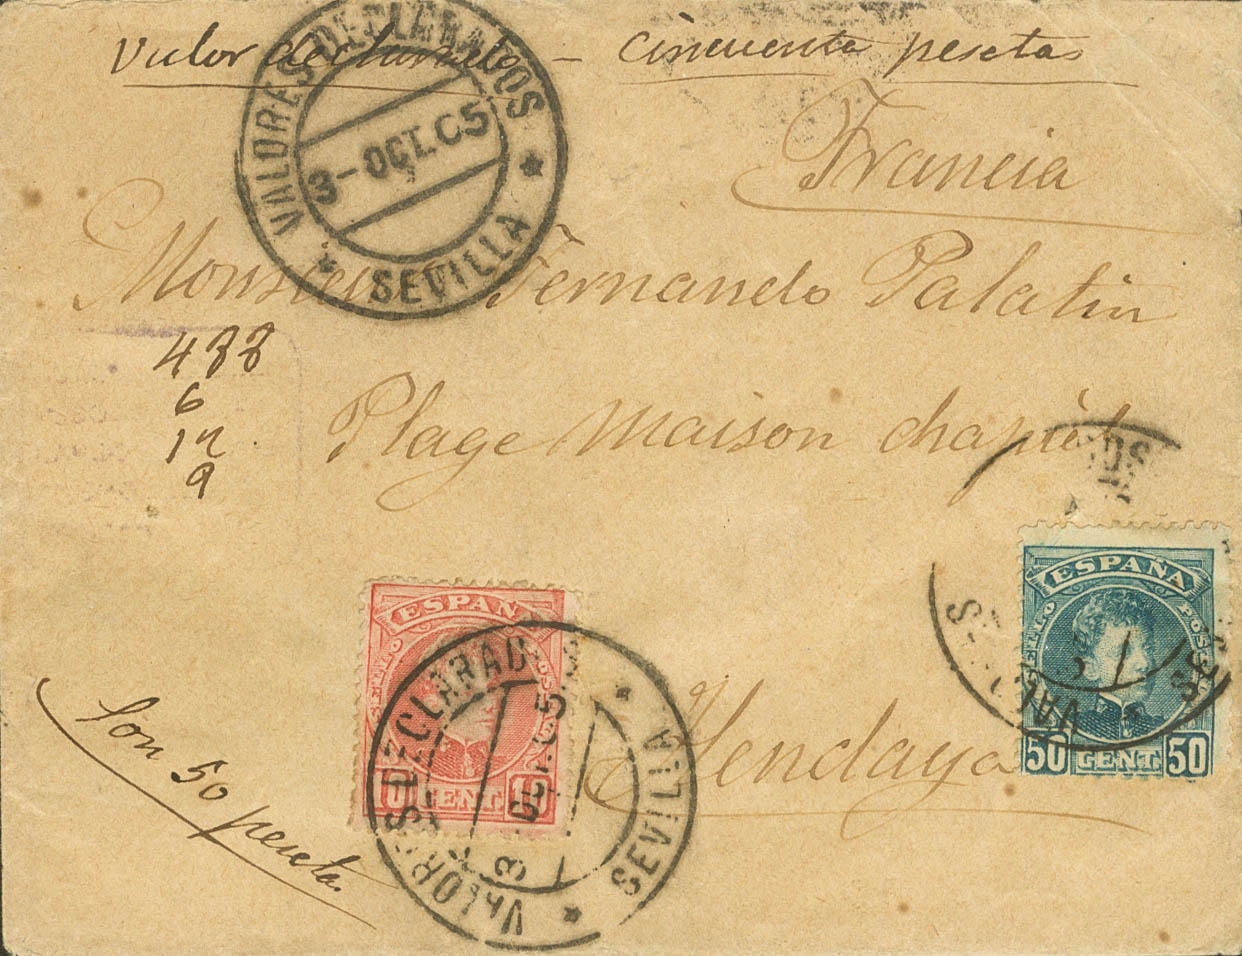 Valor declarado - cincuenta pesetas
VALORES DECLARADOS
3-OCT.05
SEVILLA
Francia
Monsieur Fernando Palatin
488
6
12
9
Plage Maison
Hendaya
ESPAÑA
50 CENT 50
VAL
ESPAÑ
10 CENT. 1
VALORES DECLARAD
3 OCT. 05
SEVILLA
Son 50 pesetas